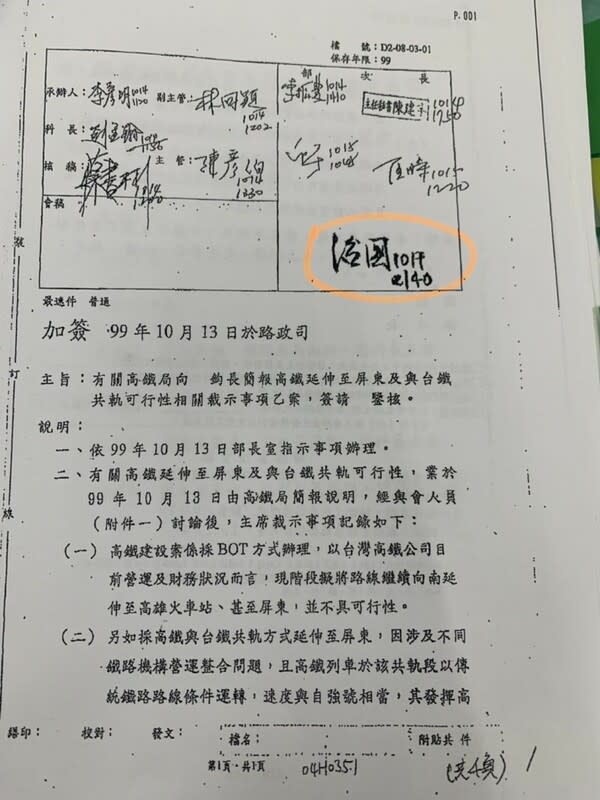 P.001
檔　號：D2-08-03-01
保存年限：99
承辦人：李彥明 1014 1120 副主管：林同頴 1014 1202
科長：
核稿： 主管：陳彥伯 1014 1230
會稿
部 次 長
1014 1410
主任秘書陳建宇 1014 1750
1015 1220
治國 1014 2140
最速件　普通
加簽 99年10月13日於路政司
主旨：有關高鐵局向　鈞長簡報高鐵延伸至屏東及與台鐵
共軌可行性相關裁示事項乙案，簽請　鑒核。
說明：
一、依99年10月13日部長室指示事項辦理。
二、有關高鐵延伸至屏東及與台鐵共軌可行性，業於
99年10月13日由高鐵局簡報說明，經與會人員
（附件一）討論後，主席裁示事項記錄如下：
（一）高鐵建設案係採BOT方式辦理，以台灣高鐵公司目
前營運及財務狀況而言，現階段擬將路線繼續向南延
伸至高雄火車站、甚至屏東，並不具可行性。
（二）另如採高鐵與台鐵共軌方式延伸至屏東，因涉及不同
鐵路機構營運整合問題，且高鐵列車於該共軌段以傳
統鐵路路線條件運轉，速度與自強號相當，其發揮高
號
訂
線
繕印： 校對： 發文： 檔名： 附貼共 件
第1頁，共1頁 04H0351 (共4頁) 1